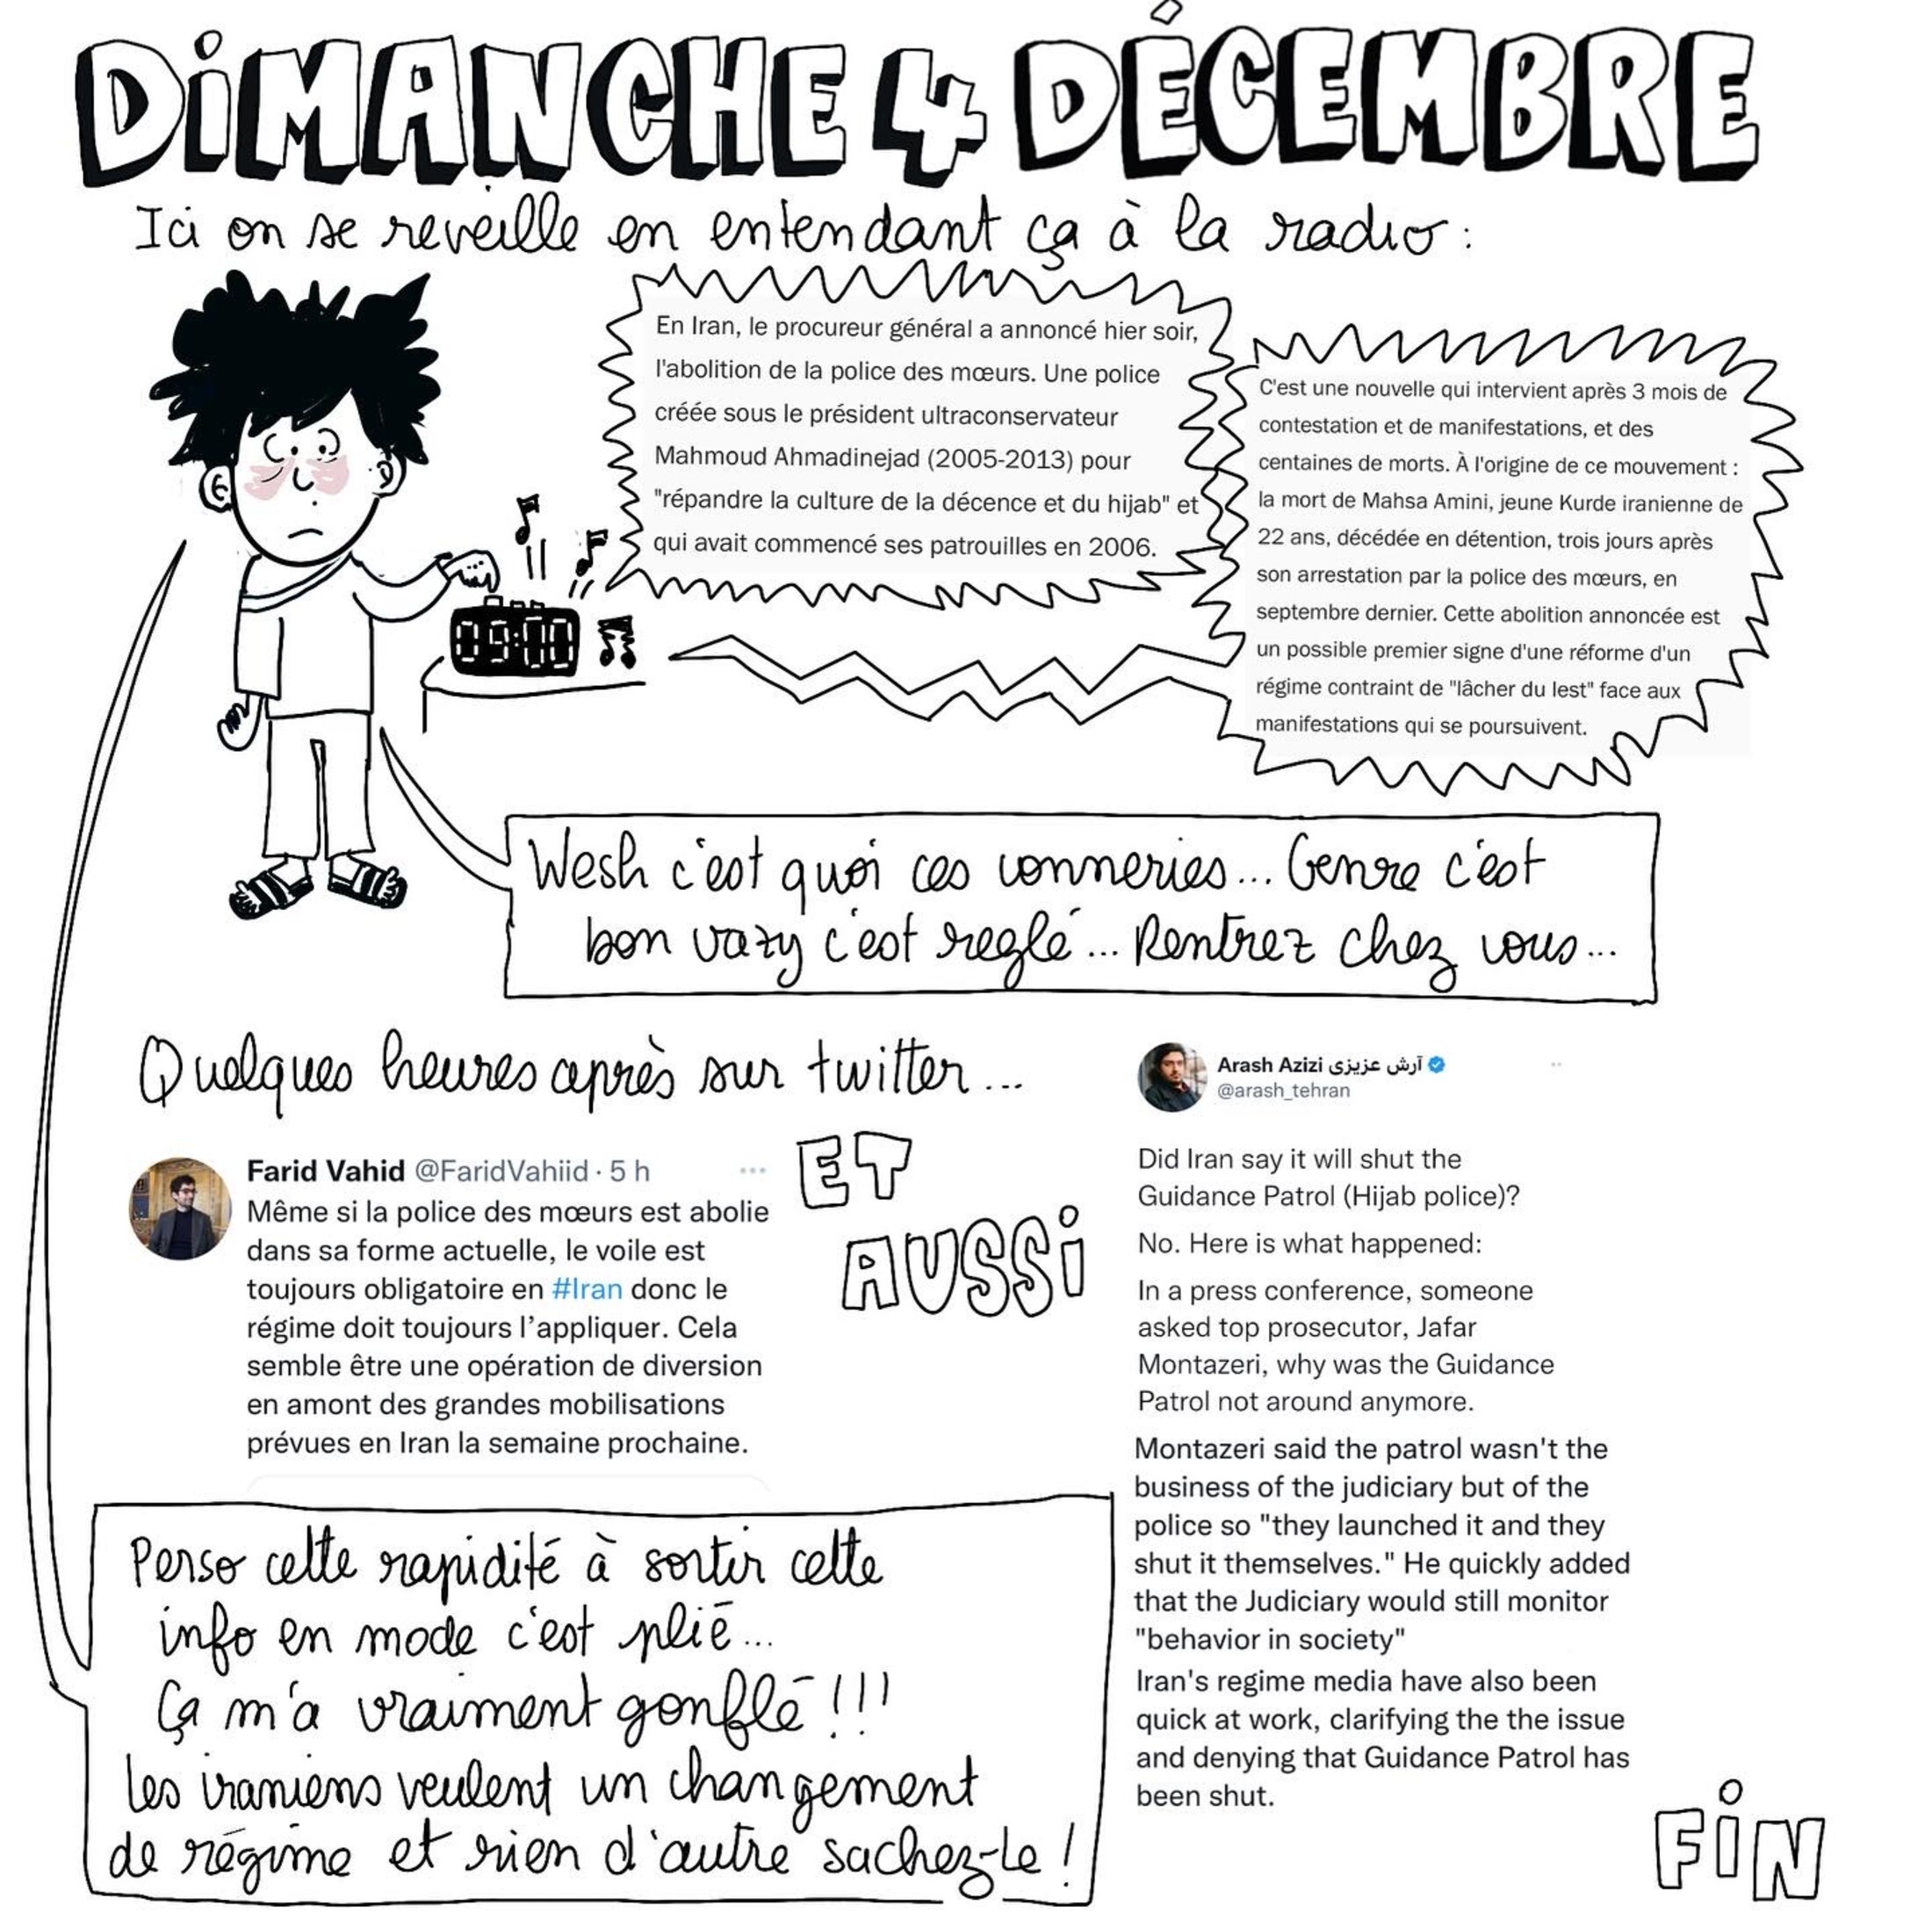 DiMANCHE 4 DÉCEMBRE
Ici on se reveille en entendant ça à la radio :
En Iran, le procureur général a annoncé hier soir,
l'abolition de la police des mœurs. Une police
créée sous le président ultraconservateur
Mahmoud Ahmadinejad (2005-2013) pour
"répandre la culture de la décence et du hijab" et
qui avait commencé ses patrouilles en 2006.
C'est une nouvelle qui intervient après 3 mois de
contestation et de manifestations, et des
centaines de morts. À l'origine de ce mouvement :
la mort de Mahsa Amini, jeune Kurde iranienne de
22 ans, décédée en détention, trois jours après
son arrestation par la police des mœurs, en
septembre dernier. Cette abolition annoncée est
un possible premier signe d'une réforme d'un
régime contraint de "lâcher du lest" face aux
manifestations qui se poursuivent.
09:00
Wesh c'est quoi ces conneries... Genre c'est
bon vazy c'est reglé... Rentrez chez vous...
Quelques heures après sur twitter...
Farid Vahid @FaridVahiid · 5 h
Même si la police des mœurs est abolie
dans sa forme actuelle, le voile est
toujours obligatoire en #Iran donc le
régime doit toujours l'appliquer. Cela
semble être une opération de diversion
en amont des grandes mobilisations
prévues en Iran la semaine prochaine.
ET
AUSSi
Arash Azizi آرش عزیزی
@arash_tehran
Did Iran say it will shut the
Guidance Patrol (Hijab police)?
No. Here is what happened:
In a press conference, someone
asked top prosecutor, Jafar
Montazeri, why was the Guidance
Patrol not around anymore.
Montazeri said the patrol wasn't the
business of the judiciary but of the
police so "they launched it and they
shut it themselves." He quickly added
that the Judiciary would still monitor
"behavior in society"
Iran's regime media have also been
quick at work, clarifying the the issue
and denying that Guidance Patrol has
been shut.
Perso cette rapidité à sortir cette
info en mode c'est plié...
Ça m'a vraiment gonflé !!!
les iraniens veulent un changement
de régime et rien d'autre sachez-le !
FiN